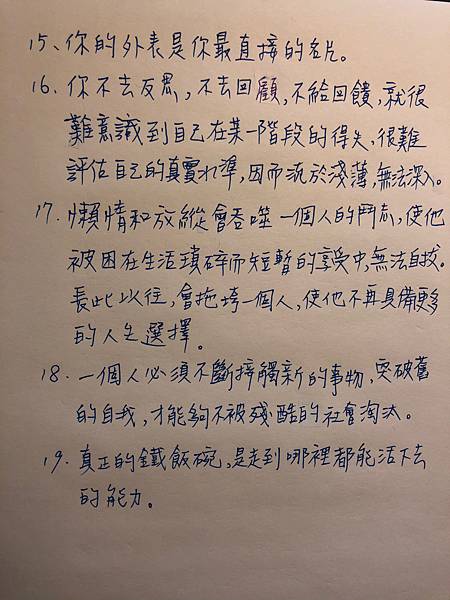 15、你的外表是你最直接的名片。
16、你不去反思,不去回顧,不給回饋,就很
難意識到自己在某一階段的得失,很難
評估自己的真實水準,因而流於淺薄,無法深入。
17、懶惰和放縱會吞噬一個人的鬥志,使他
被困在生活瑣碎而短暫的享受中,無法自拔。
長此以往,會拖垮一個人,使他不再具備更多
的人生選擇。
18.一個人必須不斷接觸新的事物,突破舊
的自我,才能夠不被殘酷的社會淘汰。
19.真正的鐵飯碗,是走到哪裡都能活下去
的能力。